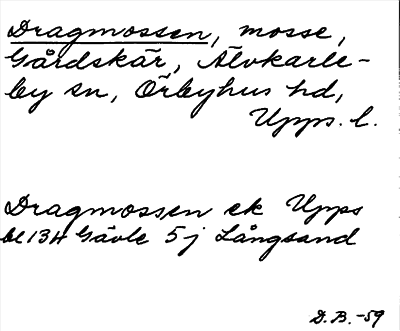 Dragmossen, mosse,
Gårdskär, Älvkarle-
by sn, Örbyhus hd,
Upps. l.
Dragmossen ek Upps
bl 13H Gävle 5j Långsand
D.B. -59